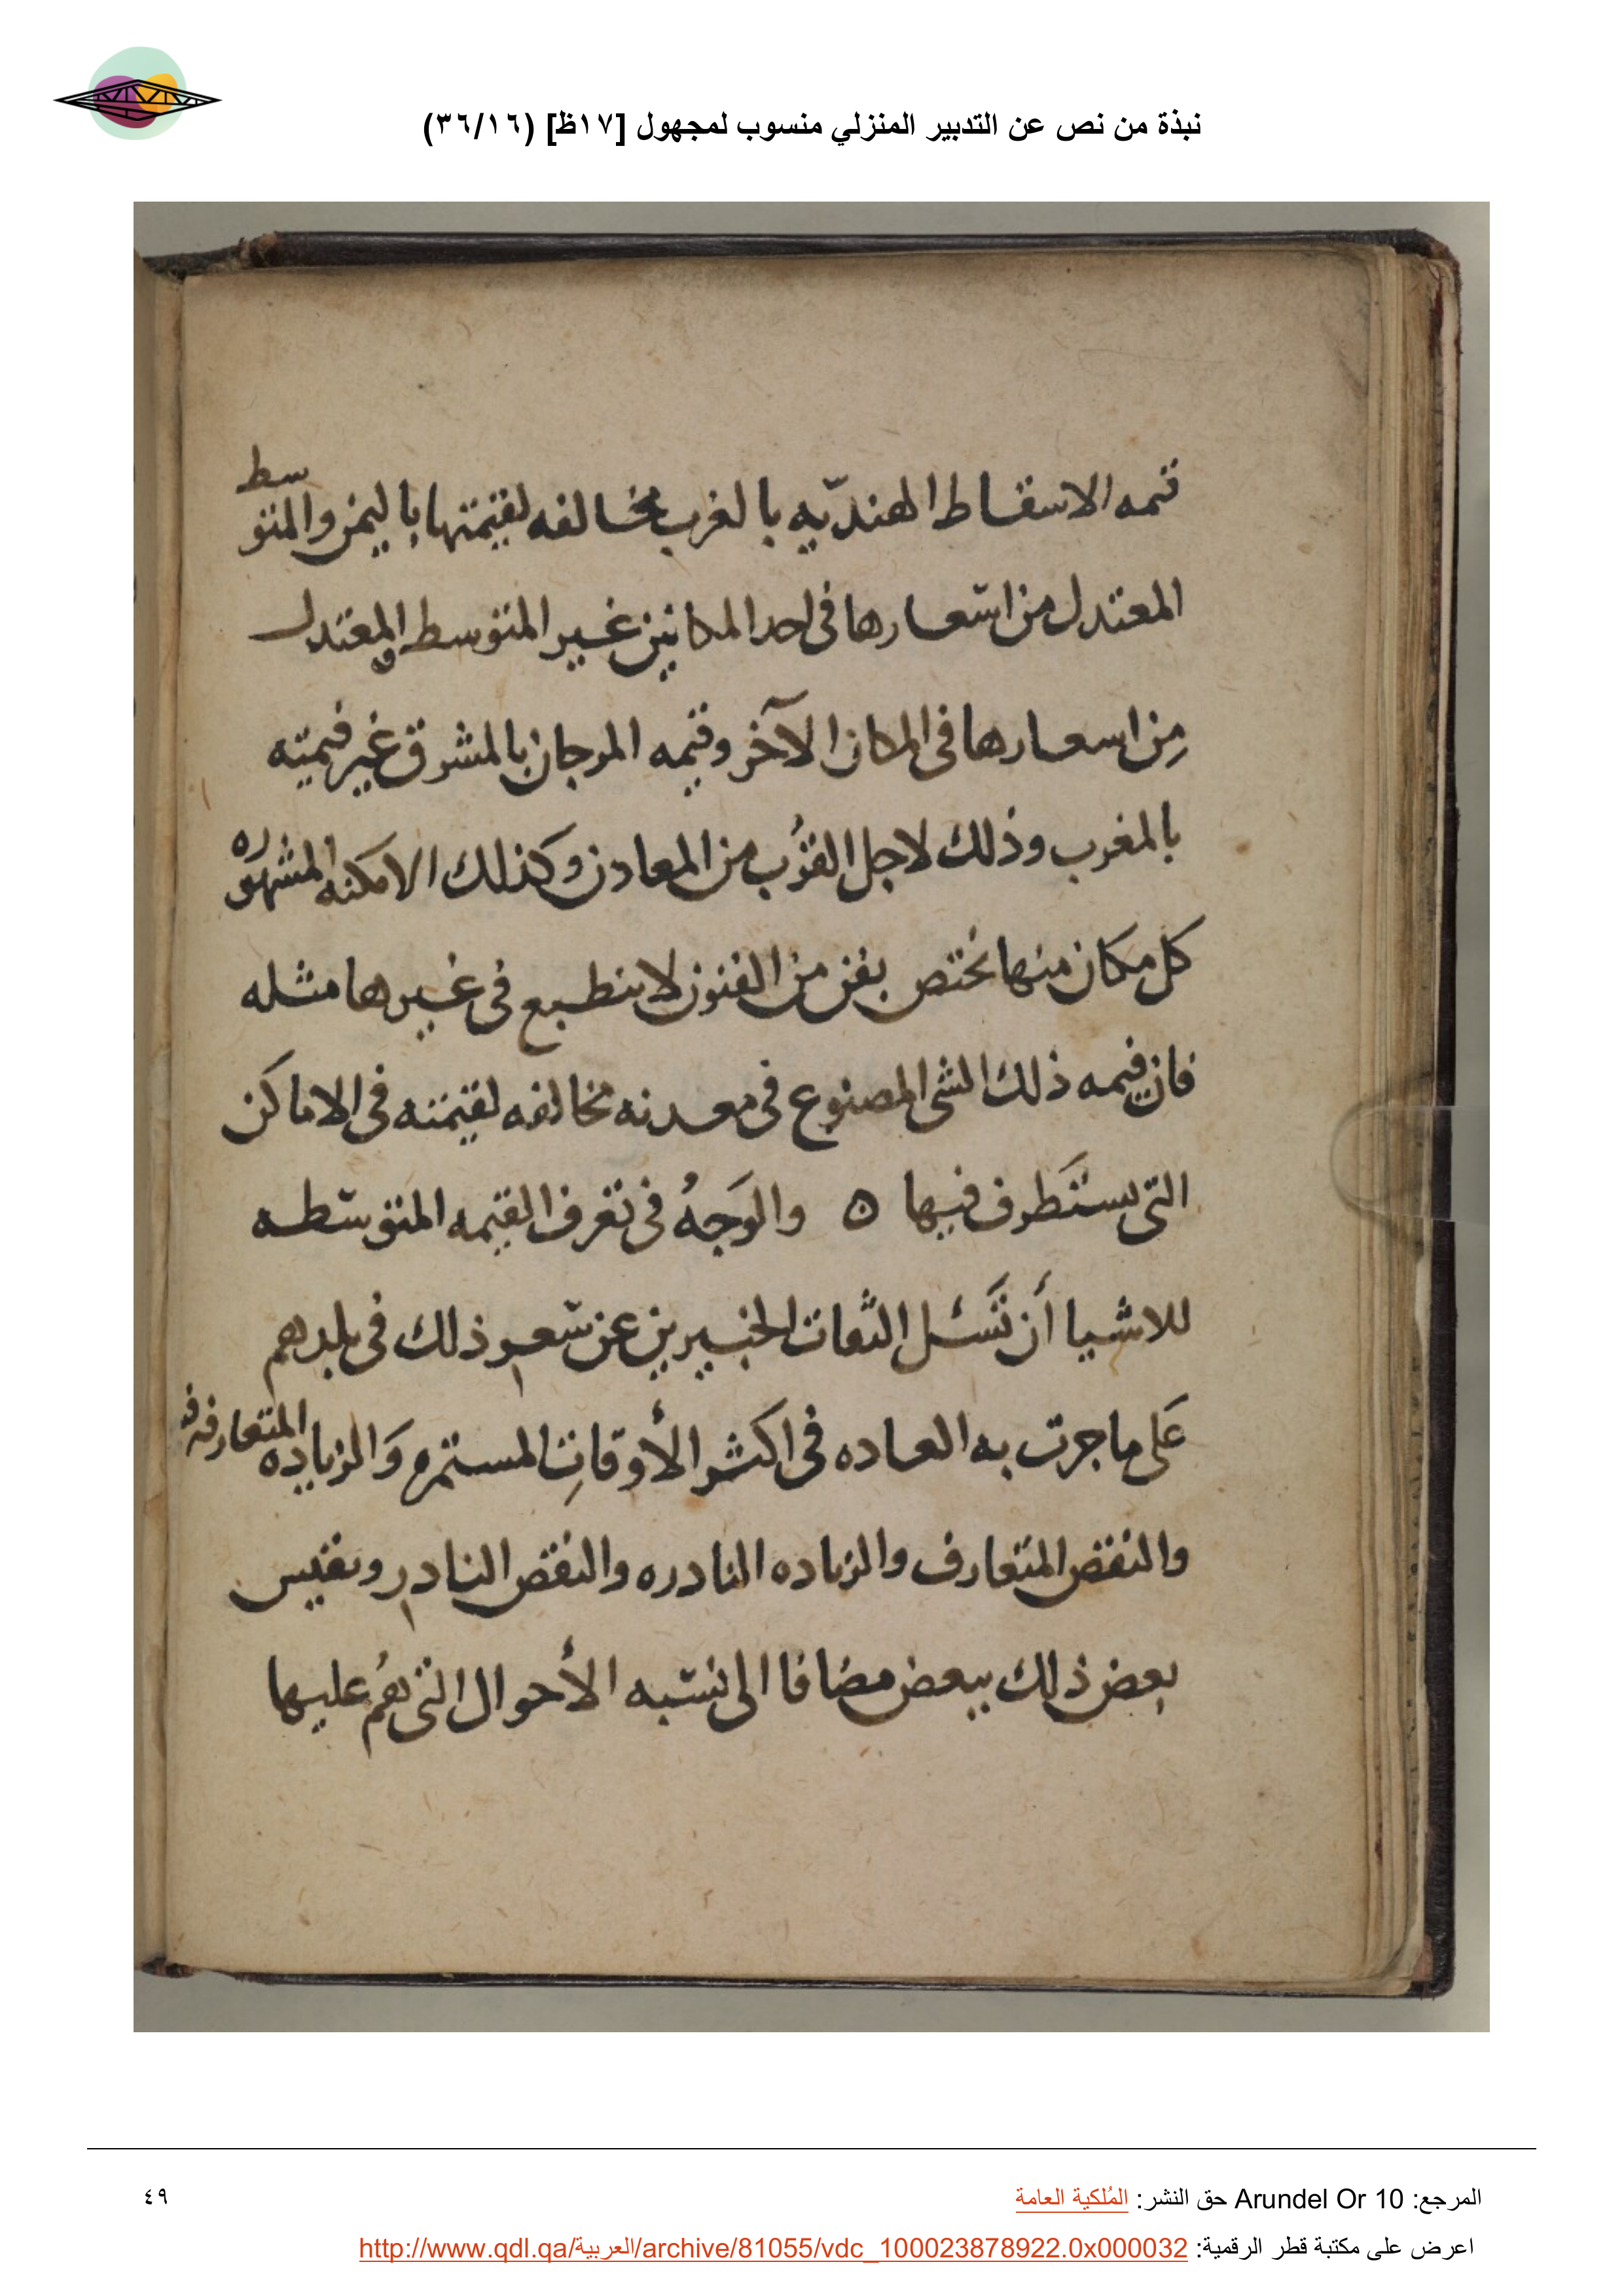 نبذة من نص عن التدبير المنزلي منسوب لمجهول [١٧ظ] (٣٦/١٦)
قيمه الاسقاط الهنديّه بالغرب مخالفه لقيمتها باليمن والمتوسط
المعتدل من اسعارها فى احد المكانين غير المتوسط والمعتدل
مِن اسعارها فى المكان الآخر وقيمه المرجان بالمشرق غير قيمته
بالمغرب وذلك لاجل القُرب من المعادن وكذلك الامكنه المشهوره
كل مكان منها يختص بفن من الفنون لا ينطبع فى غيرها مثله
فان قيمه ذلك الشى المصنوع فى معدنه مخالفه لقيمته فى الاماكن
التى يستَطرف فيها ه والوَجهُ فى تعرف القيمه المتوسطه
للاشيا أن تَسئل الثقات الخبيرين عن سعر ذلك فى بلدهم
عَلى ما جرت به العاده فى اكثر الأوقاتِ المستمره وَالزياده المتعارفه
والنقص المتعارف والزياده النادره والنقص النادر وتقيس
بعض ذلك ببعض مضافا الى نسبه الأحوال التى هُم عليها
المرجع: Arundel Or 10 حق النشر: المُلكية العامة
٤٩
اعرض على مكتبة قطر الرقمية: http://www.qdl.qa/العربية/archive/81055/vdc_100023878922.0x000032